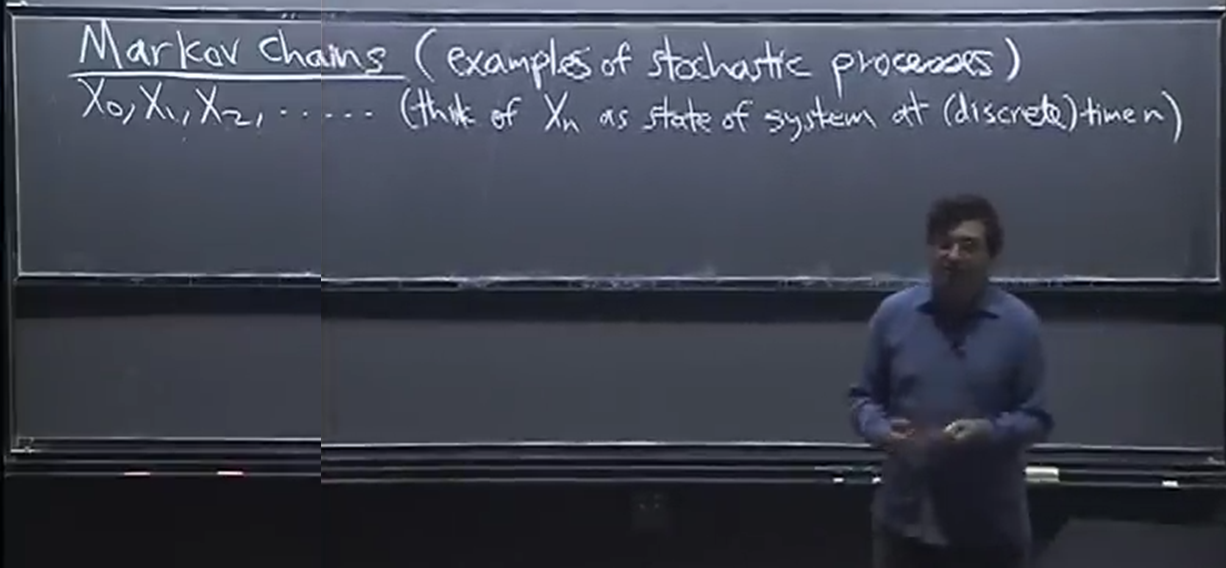 Markov Chains (examples of stochastic processes)
X₀, X₁, X₂, ..... (think of Xₙ as state of system at (discrete) time n)